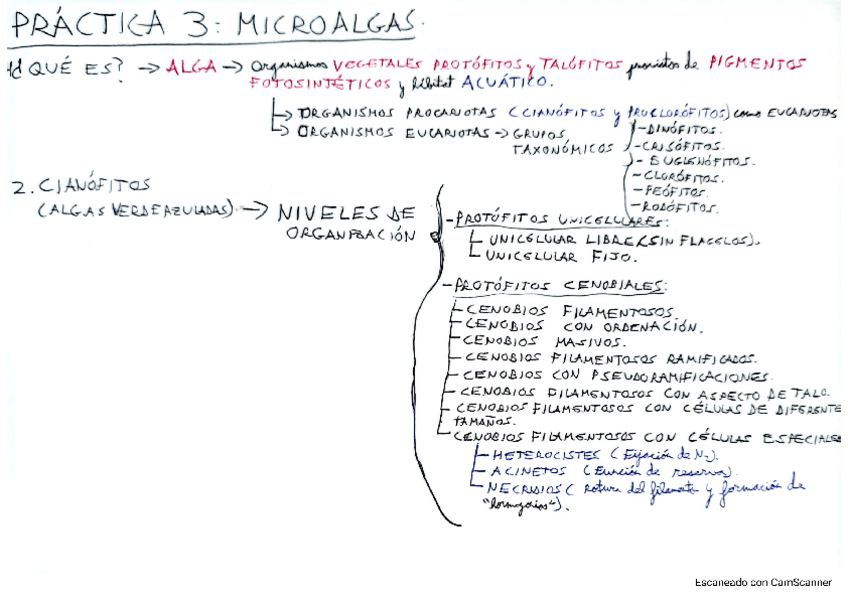 PRÁCTICA 3: MICROALGAS.
¿QUÉ ES? → ALGA → Organismos VEGETALES PROTÓFITOS y TALÓFITOS provistos de PIGMENTOS
FOTOSINTÉTICOS y hábitat ACUÁTICO.
↳ ORGANISMOS PROCARIOTAS (CIANÓFITOS y PROCLORÓFITOS) como EUCARIOTAS
↳ ORGANISMOS EUCARIOTAS → GRUPOS
TAXONÓMICOS
- DINÓFITOS.
- CRISÓFITOS.
- EUGLENÓFITOS.
- CLORÓFITOS.
- FEÓFITOS.
- RODÓFITOS.
2. CIANÓFITOS
(ALGAS VERDEAZULADAS). → NIVELES DE
ORGANIZACIÓN
- PROTÓFITOS UNICELULARES:
UNICELULAR LIBRE (SIN FLAGELOS).
UNICELULAR FIJO.
- PROTÓFITOS CENOBIALES:
- CENOBIOS FILAMENTOSOS.
- CENOBIOS CON ORDENACIÓN.
- CENOBIOS MASIVOS.
- CENOBIOS FILAMENTOSOS RAMIFICADOS.
- CENOBIOS CON PSEUDORAMIFICACIONES.
- CENOBIOS FILAMENTOSOS CON ASPECTO DE TALO.
- CENOBIOS FILAMENTOSOS CON CÉLULAS DE DIFERENTE
TAMAÑOS.
CENOBIOS FILAMENTOSOS CON CÉLULAS ESPECIALES
- HETEROCISTES (Fijación de N₂).
- ACINETOS (Función de reserva).
- NECRIDIOS (Rotura del filamento y formación de
"hormogonios").
Escaneado con CamScanner